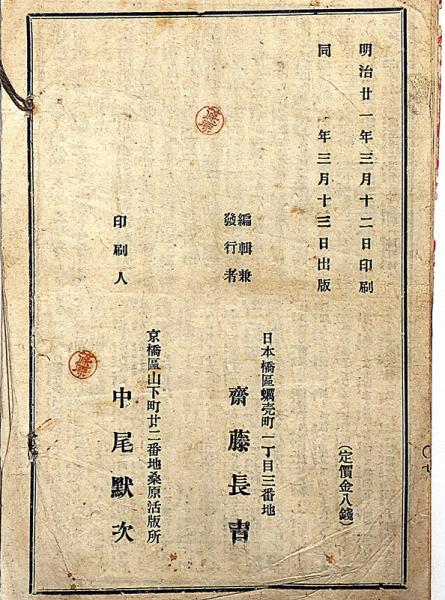 明治廿一年三月十二日印刷
同　年三月十三日出版
（定價金八錢）
編輯兼
發行者
日本橋區蠣壳町一丁目三番地
齋藤長吉
印刷人
京橋區山下町廿二番地桑原活版所
中尾默次